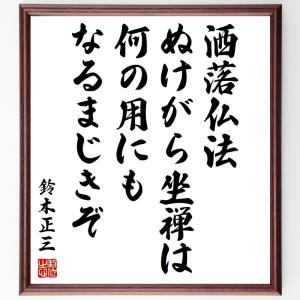 洒落仏法
ぬけがら坐禅は
何の用にも
なるまじきぞ
鈴木正三